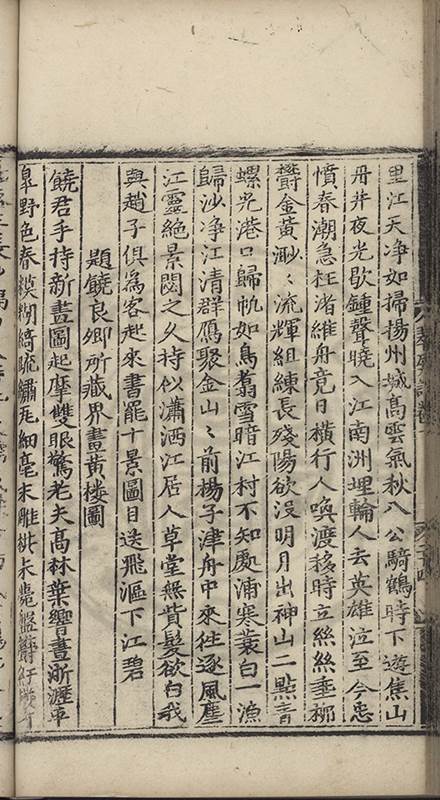 里江天净如掃揚州城髙雲氣秋八公騎鶴時下遊焦山
丹井夜光歇鍾聲曉入江南洲埋輪人去英雄泣至今忠
憤春潮急枉渚維舟竟日橫行人喚渡移時立絲絲垂桞
欝金黄渺〻流輝組練長殘陽欲沒明月出神山二㸃青
螺光港口歸帆如鳥翥雪暗江村不知處浦寒蓑白一漁
歸沙净江清群鴈聚金山〻前楊子津舟中來徃逐風塵
江靈絶景閟之乆持似瀟洒江居人草堂無貲髪欲白我
與趙子俱爲客起來書罷十景圖目送飛漚下江碧
題饒良卿所藏界畫黄楼圖
饒君手持新畫圖起摩雙眼驚老夫髙林葉響晝淅瀝平
臯野色春模糊縞疏鏽瓦細毫末雕